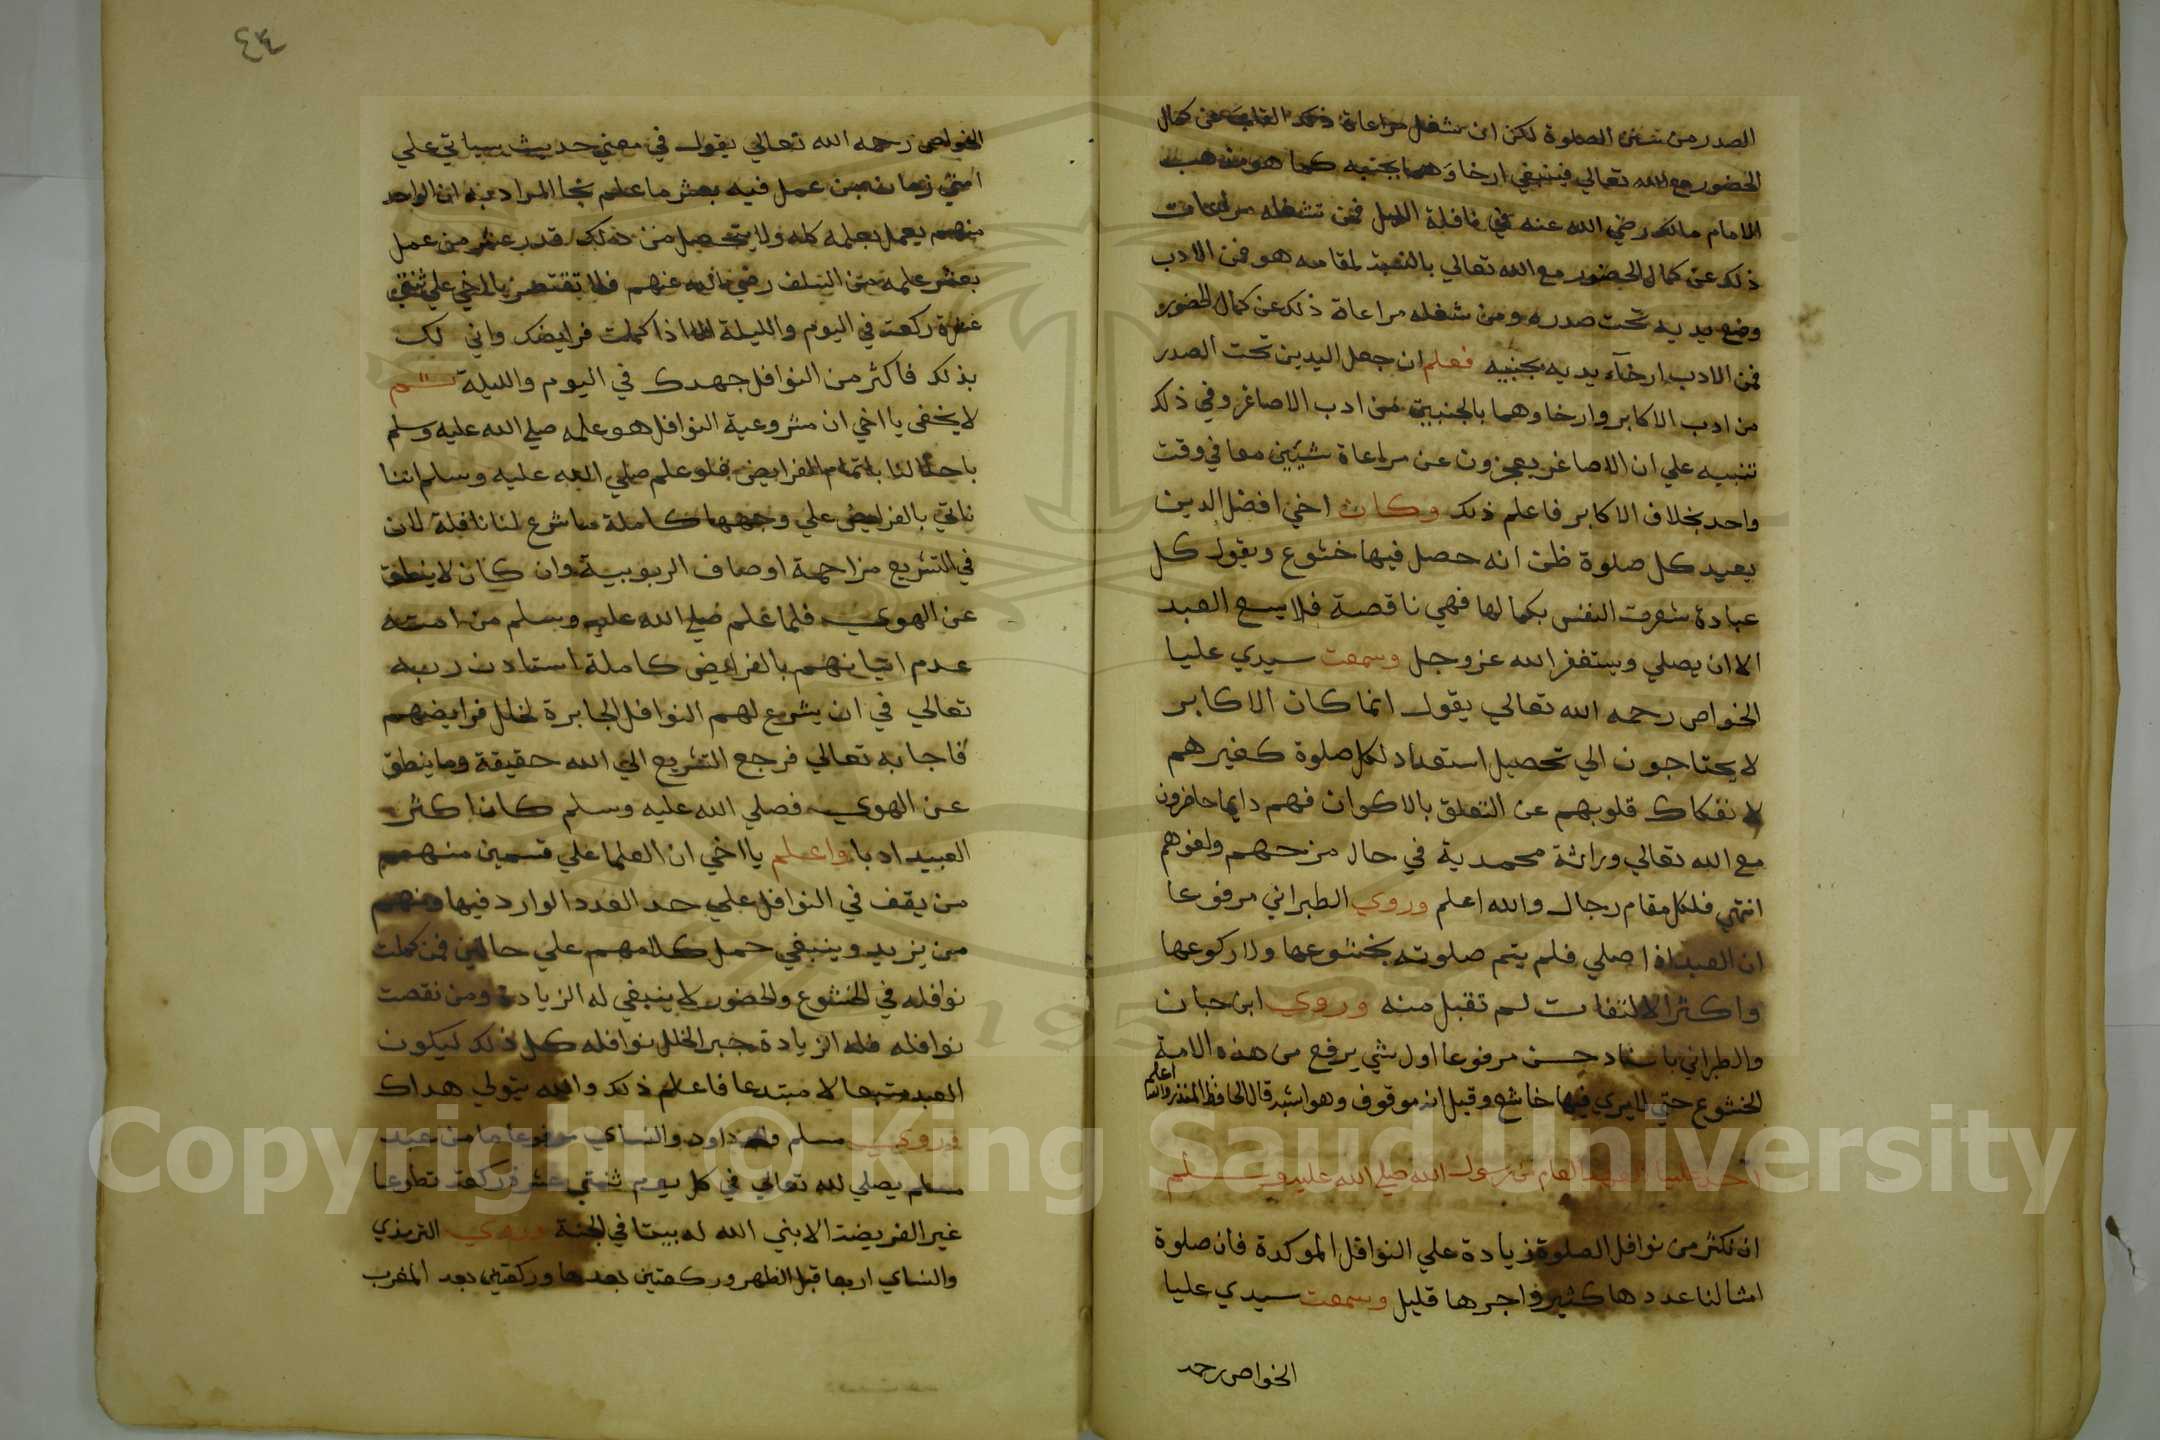 الصدر من سنن الصلوة لكن ان شغل مراعاة ذلك القلب عن كمال
الحضور مع الله تعالي فينبغي ارخاوهما بجنبيه كما هو مذهب
الامام مالك رضي الله عنه في نافلة الليل فمن تشغله مراعات
ذلك عن كمال الحضور مع الله تعالي بالنسبة لمقامه هو فمن الادب
وضع يديه تحت صدره ومن شغله مراعاة ذلك عن كمال الحضور
فمن الادب ارخآء يديه بجنبيه فعلم ان جعل اليدين تحت الصدر
من ادب الاكابر وارخاوهما بالجنبين من ادب الاصاغر وفي ذلك
تنبيه علي ان الاصاغر يعجزون عن مراعاة شيئين معا في وقت
واحد بخلاف الاكابر فاعلم ذلك وكان اخي افضل الدين
يعيد كل صلوة ظن انه حصل فيها خشوع ويقول كل
عبادة شعرت النفس بكمالها فهي ناقصة فلا يسع العبد
الا ان يصلي ويستغفر الله عز وجل وسمعت سيدي عليا
الخواص رحمه الله تعالي يقول انما كان الاكابر
لا يحتاجون الي تحصيل استعداد لكل صلوة كغيرهم
لانفكاك قلوبهم عن التعلق بالاكوان فهم دايما حاضرون
مع الله تعالي وراثة محمدية في حال مزحهم ولغوهم
انتهي فلكل مقام رجال والله اعلم وروي الطبراني مرفوعا
ان العبد اذا صلي فلم يتم صلوته بخشوعها ولا ركوعها
واكثر الالتفات لم تقبل منه وروي ابن حبان
والطبراني باسناد حسن مرفوعا اول شي يرفع من هذه الامة
الخشوع حتي لا يري فيها خاشع وقيل انه موقوف وهو اشبه قال الحافظ المنذري والله اعلم
اخذ علينا العهد العام من رسول الله صلي الله عليه وسلم
ان نكثر من نوافل الصلوة زيادة علي النوافل الموكدة فان صلوة
امثالنا عددها كثير واجرها قليل وسمعت سيدي عليا
الخواص رحمه
٤٤
الخواص رحمه الله تعالي يقول في معني حديث سياتي علي
امتي زمان من عمل فيه بعشر ما علم نجا المراد به ان الواحد
منهم يعمل بعلمه كله ولا يتحصل من ذلك قدر عشر من عمل
بعشر علمه من السلف رضي الله عنهم فلا تقتصر يا اخي علي ثنتي
عشرة ركعة في اليوم والليلة الا اذا كملت فرايضك واني لك
بذلك فاكثر من النوافل جهدك في اليوم والليلة ثم
لا يخفي يا اخي ان مشروعية النوافل هو علمه صلي الله عليه وسلم
باخلالنا باتمام الفرايض فلو علم صلي الله عليه وسلم اننا
ناتي بالفرايض علي وجهها كاملة ما شرع لنا نافلة لان
في التشريع مزاحمة اوصاف الربوبية وان كان لا ينطق
عن الهوي فلما علم صلي الله عليه وسلم من امته
عدم اتيانهم بالفرايض كاملة استاذن ربه
تعالي في ان يشرع لهم النوافل الجابرة لخلل فرايضهم
فاجابه تعالي فرجع التشريع الي الله حقيقة وما ينطق
عن الهوي فصلي الله عليه وسلم كان اكثر
العبيد ادبا واعلم يا اخي ان العلما علي قسمين منهم
من يقف في النوافل علي حد العدد الوارد فيها ومنهم
من يزيد وينبغي حمل كلامهم علي حالين فمن كملت
نوافله في الخشوع والحضور لا ينبغي له الزيادة ومن نقصت
نوافله فله الزيادة جبرا لخلل نوافله كل ذلك ليكون
العبد متبعا لا مبتدعا فاعلم ذلك والله يتولي هداك
وروي مسلم وابو داود والنساي مرفوعا ما من عبد
مسلم يصلي لله تعالي في كل يوم ثنتي عشرة ركعة تطوعا
غير الفريضة الا بني الله له بيتا في الجنة وروي الترمذي
والنساي اربعا قبل الظهر وركعتين بعدها وركعتين بعد المغرب